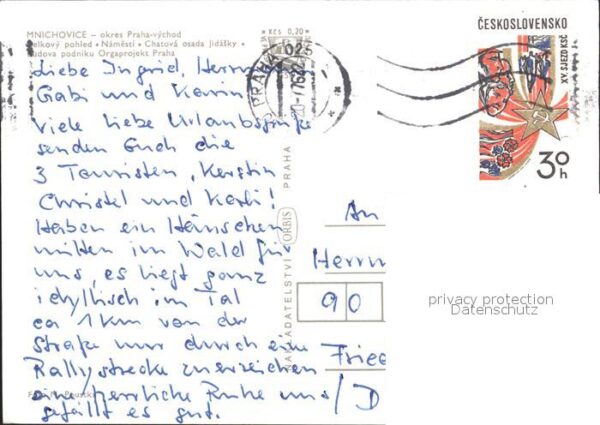 MNICHOVICE - okres Praha-východ
Celkový pohled • Náměstí • Chatová osada Jidášky •
Budova podniku Orgaprojekt Praha
Kčs 0,20
ČESKOSLOVENSKO
XV. SJEZD KSČ
30h
PRAHA 025
Liebe Ingrid, Herrm
Gabi und Karin
Viele liebe Urlaubsgrüße
senden Euch die
3 Touristen, Kerstin
Christel und Karli!
Haben ein Häuschen
mitten im Wald für
uns, es liegt ganz
idyllisch im Tal
ca 1 km von der
Straße nur durch eine
Rallystrecke zu erreichen
eine herrliche Ruhe uns
gefällt es gut.
NAKLADATELSTVÍ ORBIS PRAHA
An
Herrn
90
Fried
/D
privacy protection
Datenschutz